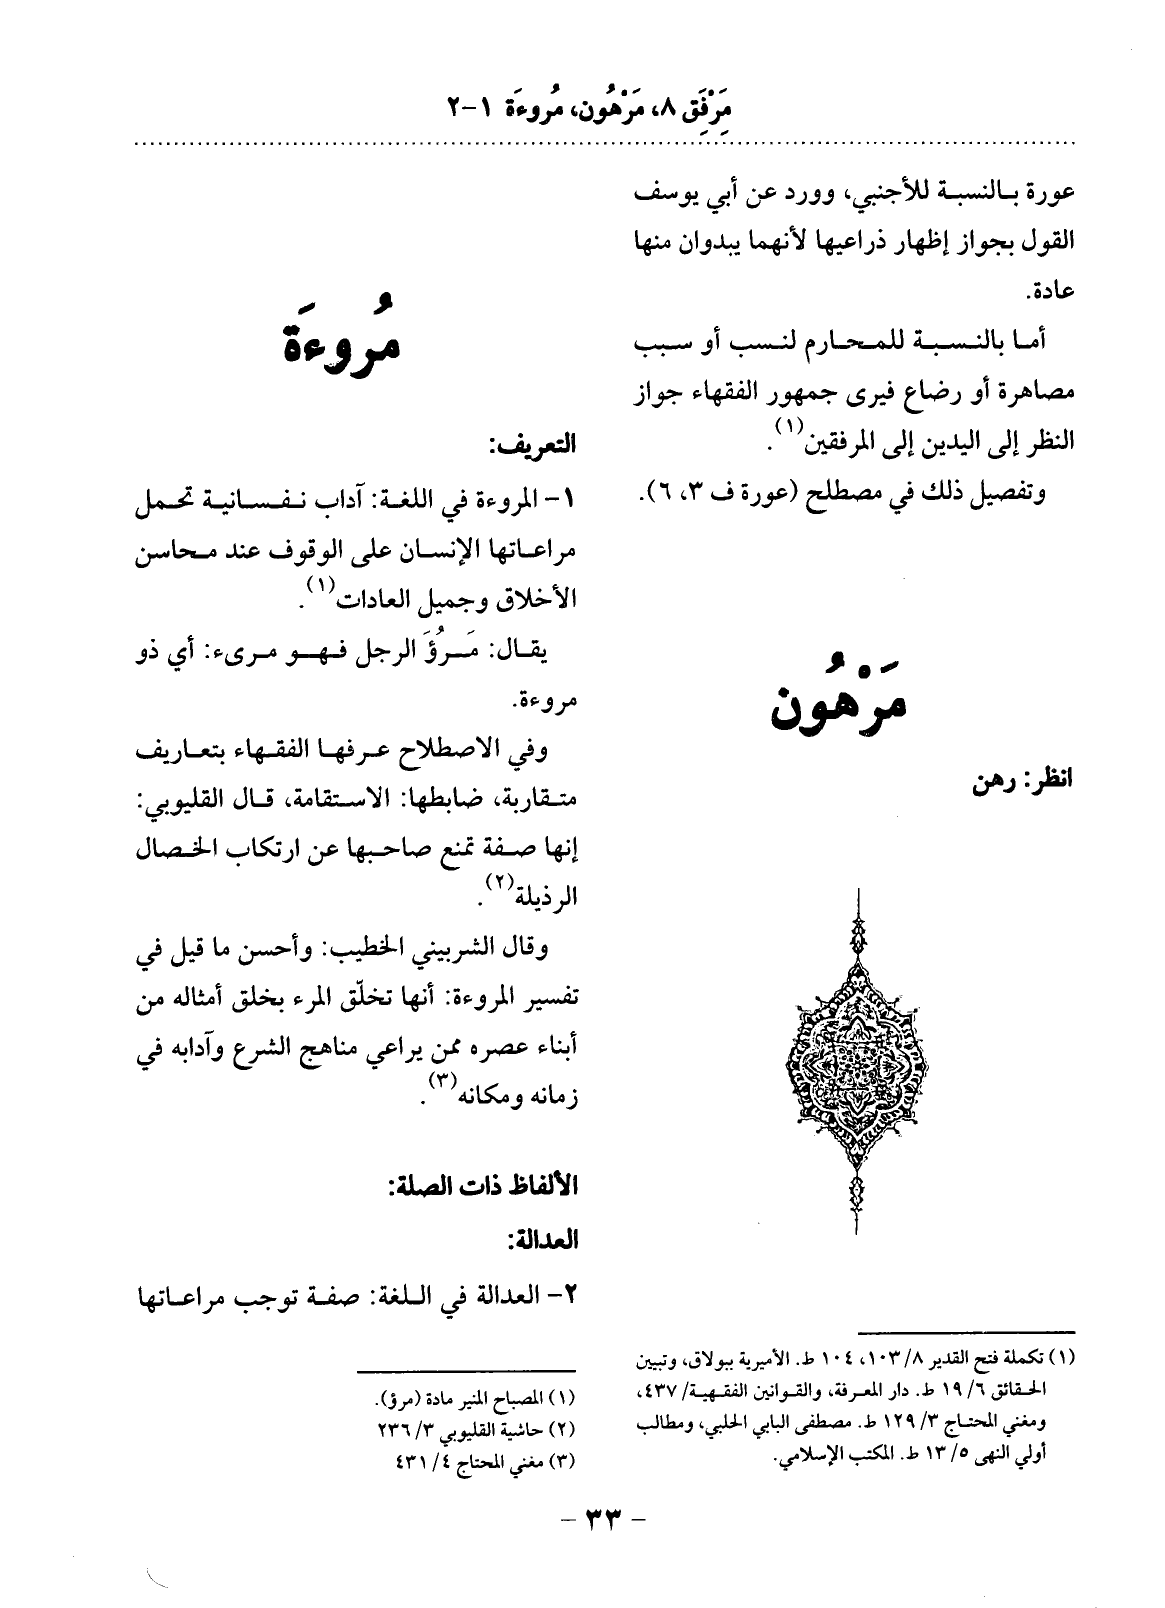 مَرْفِق ٨، مَرْهُون، مُروءَة ١-٢
عورة بالنسبة للأجنبي، وورد عن أبي يوسف
القول بجواز إظهار ذراعيها لأنهما يبدوان منها
عادة.
أما بالنسبة للمحارم لنسب أو سبب
مصاهرة أو رضاع فيرى جمهور الفقهاء جواز
النظر إلى اليدين إلى المرفقين(١).
وتفصيل ذلك في مصطلح (عورة ف ٣، ٦).
مَرْهُون
انظر: رهن
(١) تكملة فتح القدير ٨/ ١٠٣، ١٠٤ ط. الأميرية ببولاق، وتبيين
الحقائق ٦/ ١٩ ط. دار المعرفة، والقوانين الفقهية/ ٤٣٧،
ومغني المحتاج ٣/ ١٢٩ ط. مصطفى البابي الحلبي، ومطالب
أولي النهى ٥/ ١٣ ط. المكتب الإسلامي.
مُروءَة
التعريف:
١- المروءة في اللغة: آداب نفسانية تحمل
مراعاتها الإنسان على الوقوف عند محاسن
الأخلاق وجميل العادات(١).
يقال: مَرُؤَ الرجل فهو مرىء: أي ذو
مروءة.
وفي الاصطلاح عرفها الفقهاء بتعاريف
متقاربة، ضابطها: الاستقامة، قال القليوبي:
إنها صفة تمنع صاحبها عن ارتكاب الخصال
الرذيلة(٢).
وقال الشربيني الخطيب: وأحسن ما قيل في
تفسير المروءة: أنها تخلّق المرء بخلق أمثاله من
أبناء عصره ممن يراعي مناهج الشرع وآدابه في
زمانه ومكانه(٣).
الألفاظ ذات الصلة:
العدالة:
٢- العدالة في اللغة: صفة توجب مراعاتها
(١) المصباح المنير مادة (مرؤ).
(٢) حاشية القليوبي ٣/ ٢٣٦
(٣) مغني المحتاج ٤/ ٤٣١
- ٣٣ -